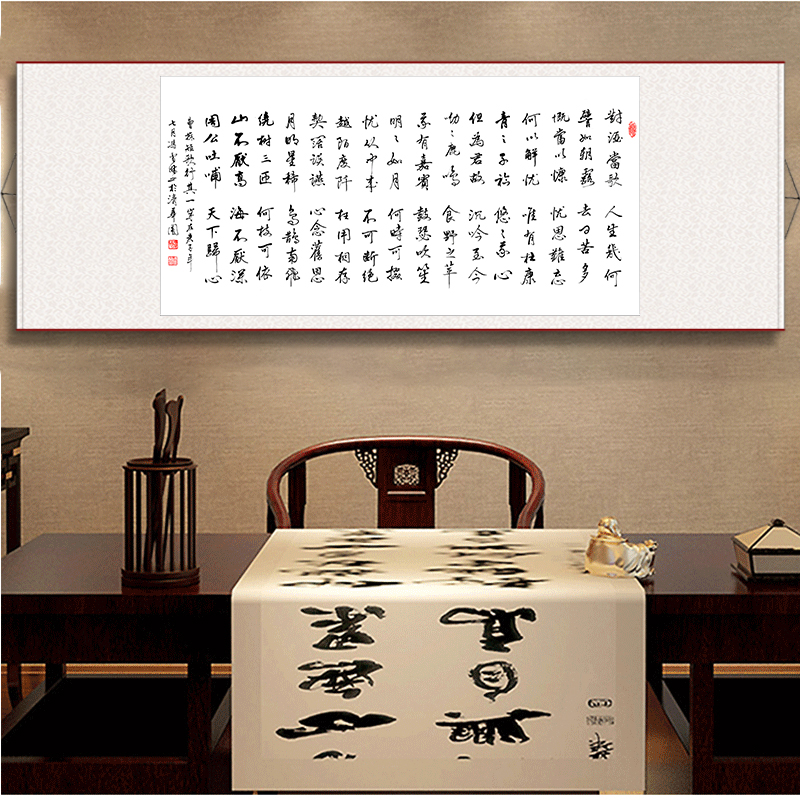 對酒當歌 人生幾何
譬如朝露 去日苦多
慨當以慷 忧思難忘
何以解忧 唯有杜康
青々子衿 悠々我心
但為君故 沉吟至今
呦々鹿鳴 食野之苹
我有嘉賓 鼓瑟吹笙
明々如月 何時可掇
忧從中来 不可断絕
越陌度阡 枉用相存
契阔談讌 心念舊恩
月明星稀 烏鵲南飛
绕樹三匝 何枝可依
山不厭高 海不厭深
周公吐哺 天下歸心
曹操短歌行其一
七月